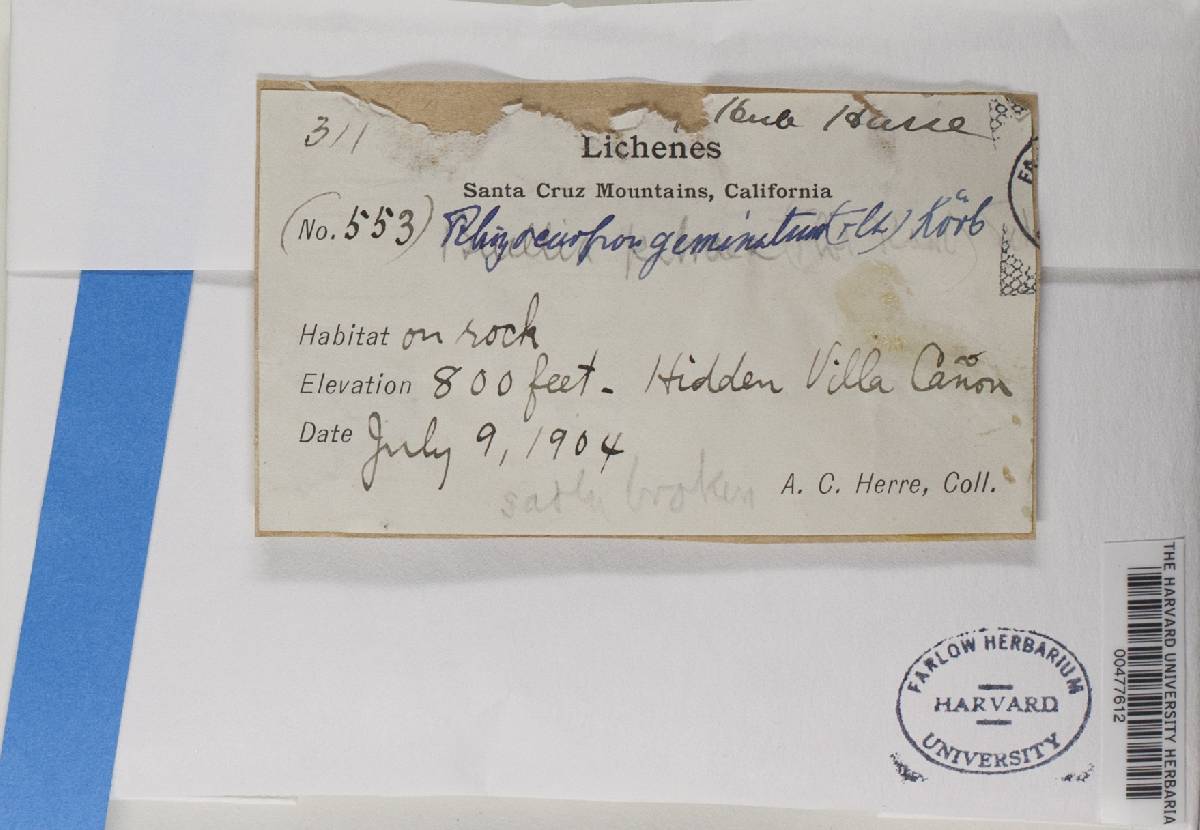 311
Herb Hasse
Lichenes
Santa Cruz Mountains, California
(No. 553) Rhizocarpon geminatum (Fl.) Körb
Habitat on rock
Elevation 800 feet - Hidden Villa Cañon
Date July 9, 1904
broken
A. C. Herre, Coll.
FARLOW HERBARIUM
HARVARD
UNIVERSITY
THE HARVARD UNIVERSITY HERBARIA
00477612